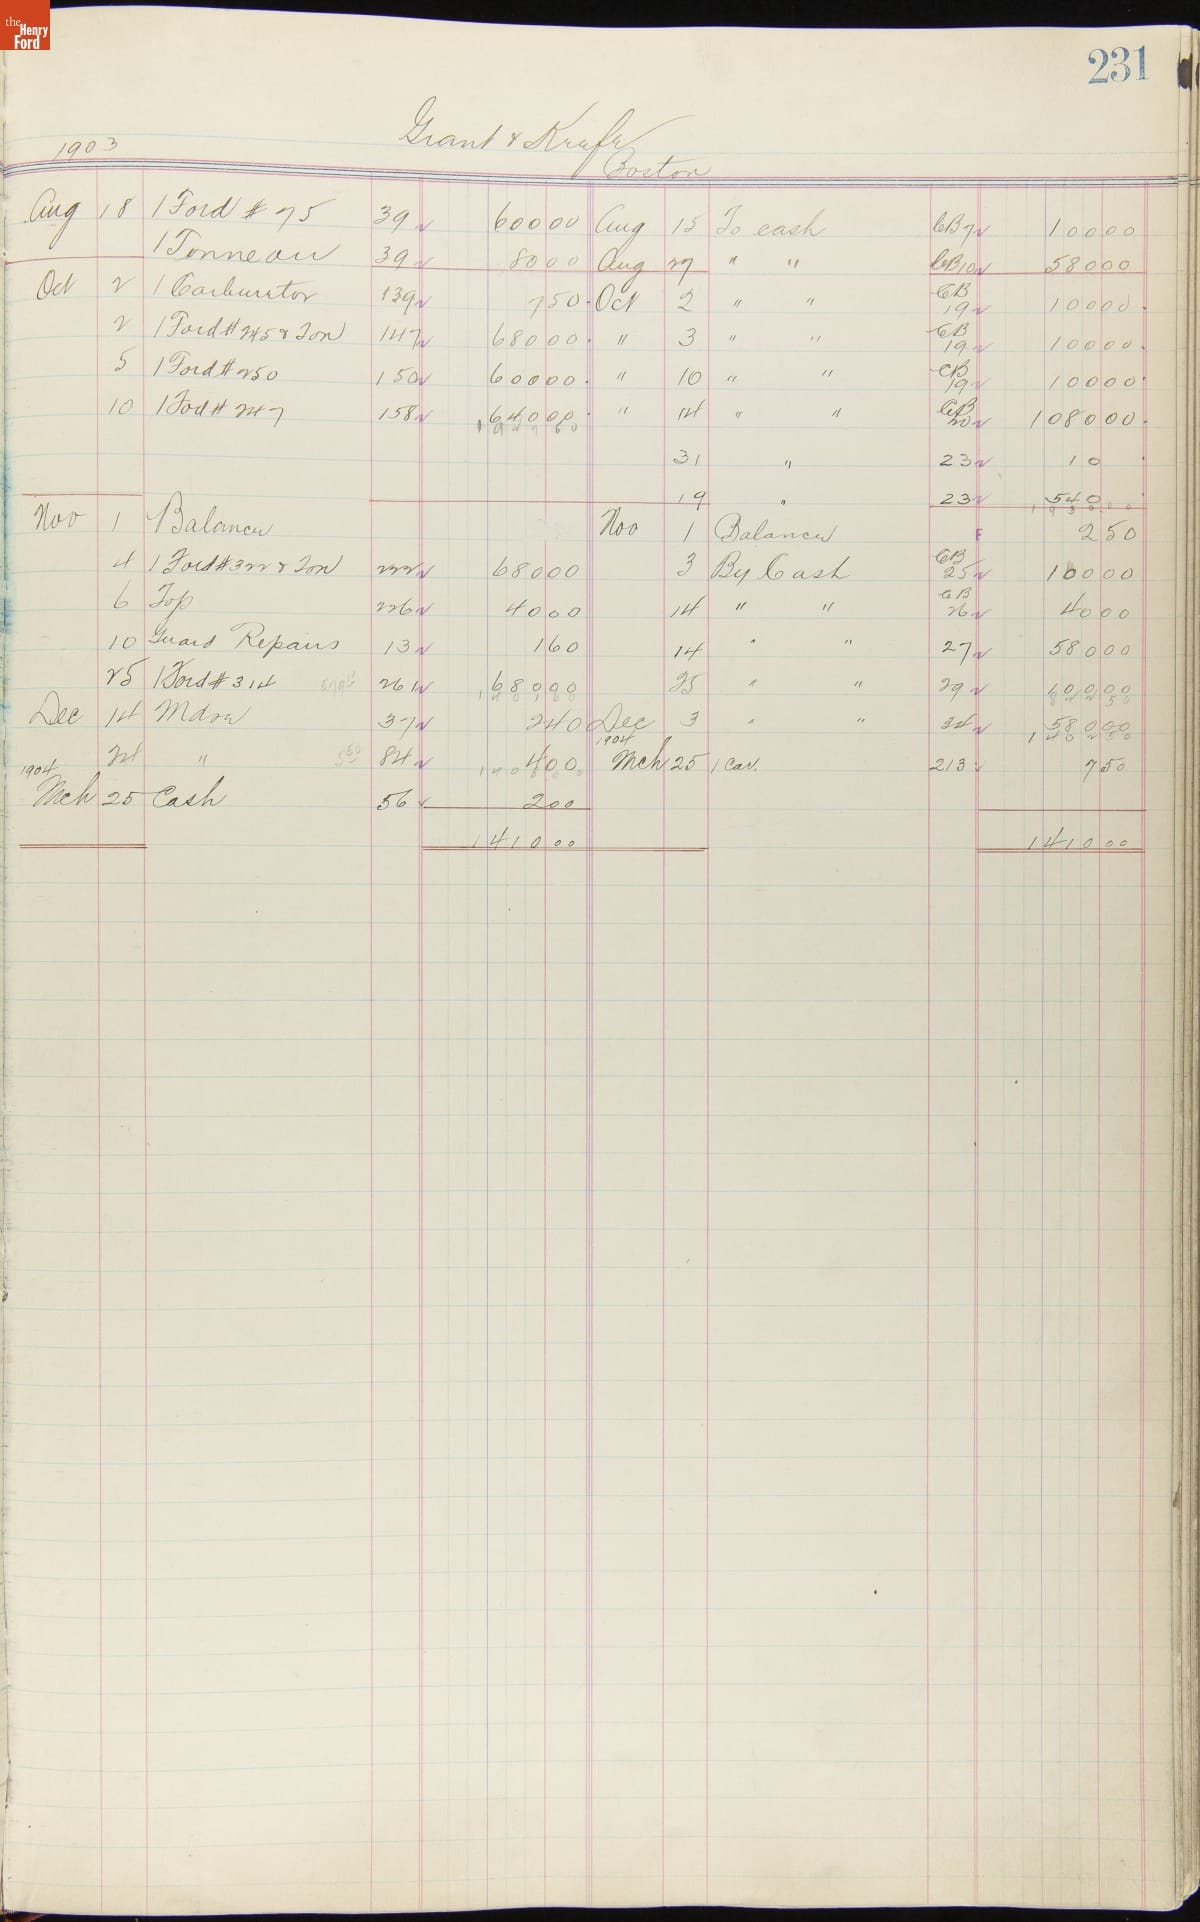 the Henry Ford
231
1903 Grant &
Boston
Aug 18 1 Ford # 75 39 600 00 Aug 15 To cash CB7 100 00
1 Tonneau 39 80 00 Aug 27 " " CB10 580 00
Oct 2 1 Carburetor 139 7 50 Oct 2 " " CB 19 100 00
2 1 Ford # 245 & Ton 147 680 00 " 3 " " CB 19 100 00
5 1 Ford # 250 150 600 00 " 10 " " CB 19 100 00
10 1 Fod # 247 158 640 00 " 14 " " CB 20 1080 00
31 " 23 10
19 " 23 540
Nov 1 Balance Nov 1 Balance F 2 50
4 1 Ford # 322 & Ton 222 680 00 3 By Cash CB 25 100 00
6 Top 226 40 00 14 " " CB 26 40 00
10 Guard Repairs 13 1 60 14 " " 27 580 00
25 1 Ford # 314 261 680 00 25 " " 29 100 00
Dec 14 Mdse 37 2 40 Dec 3 " " 34 580 00
24 " 84 4 00 1904 Mch 25 1 Car. 213 7 50
1904
Mch 25 Cash 56 2 00
1410 00 1410 00